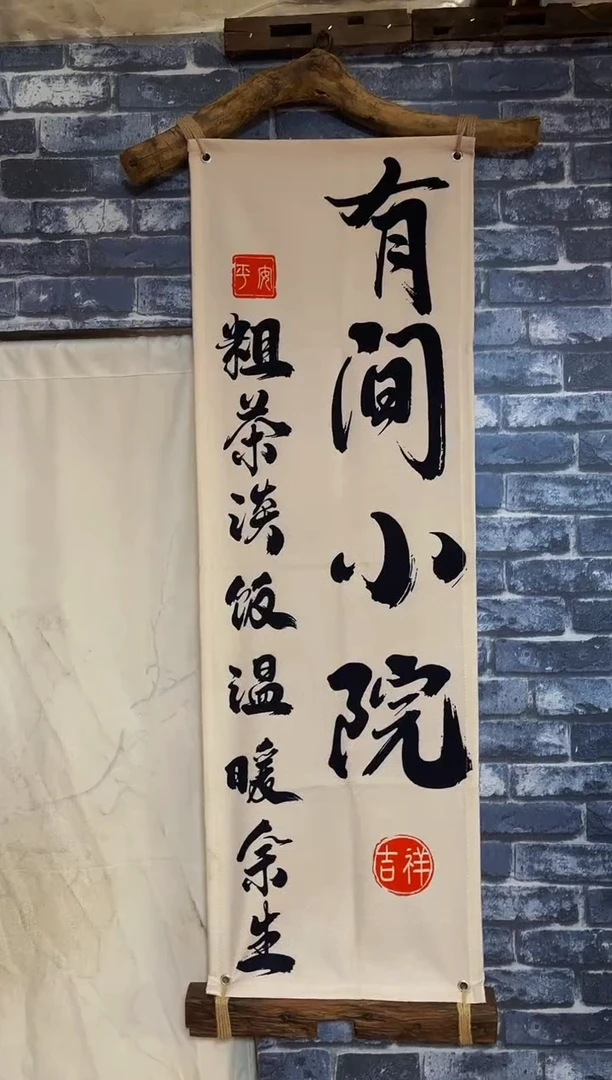 有间小院
吉祥
平安
粗茶淡饭温暖余生